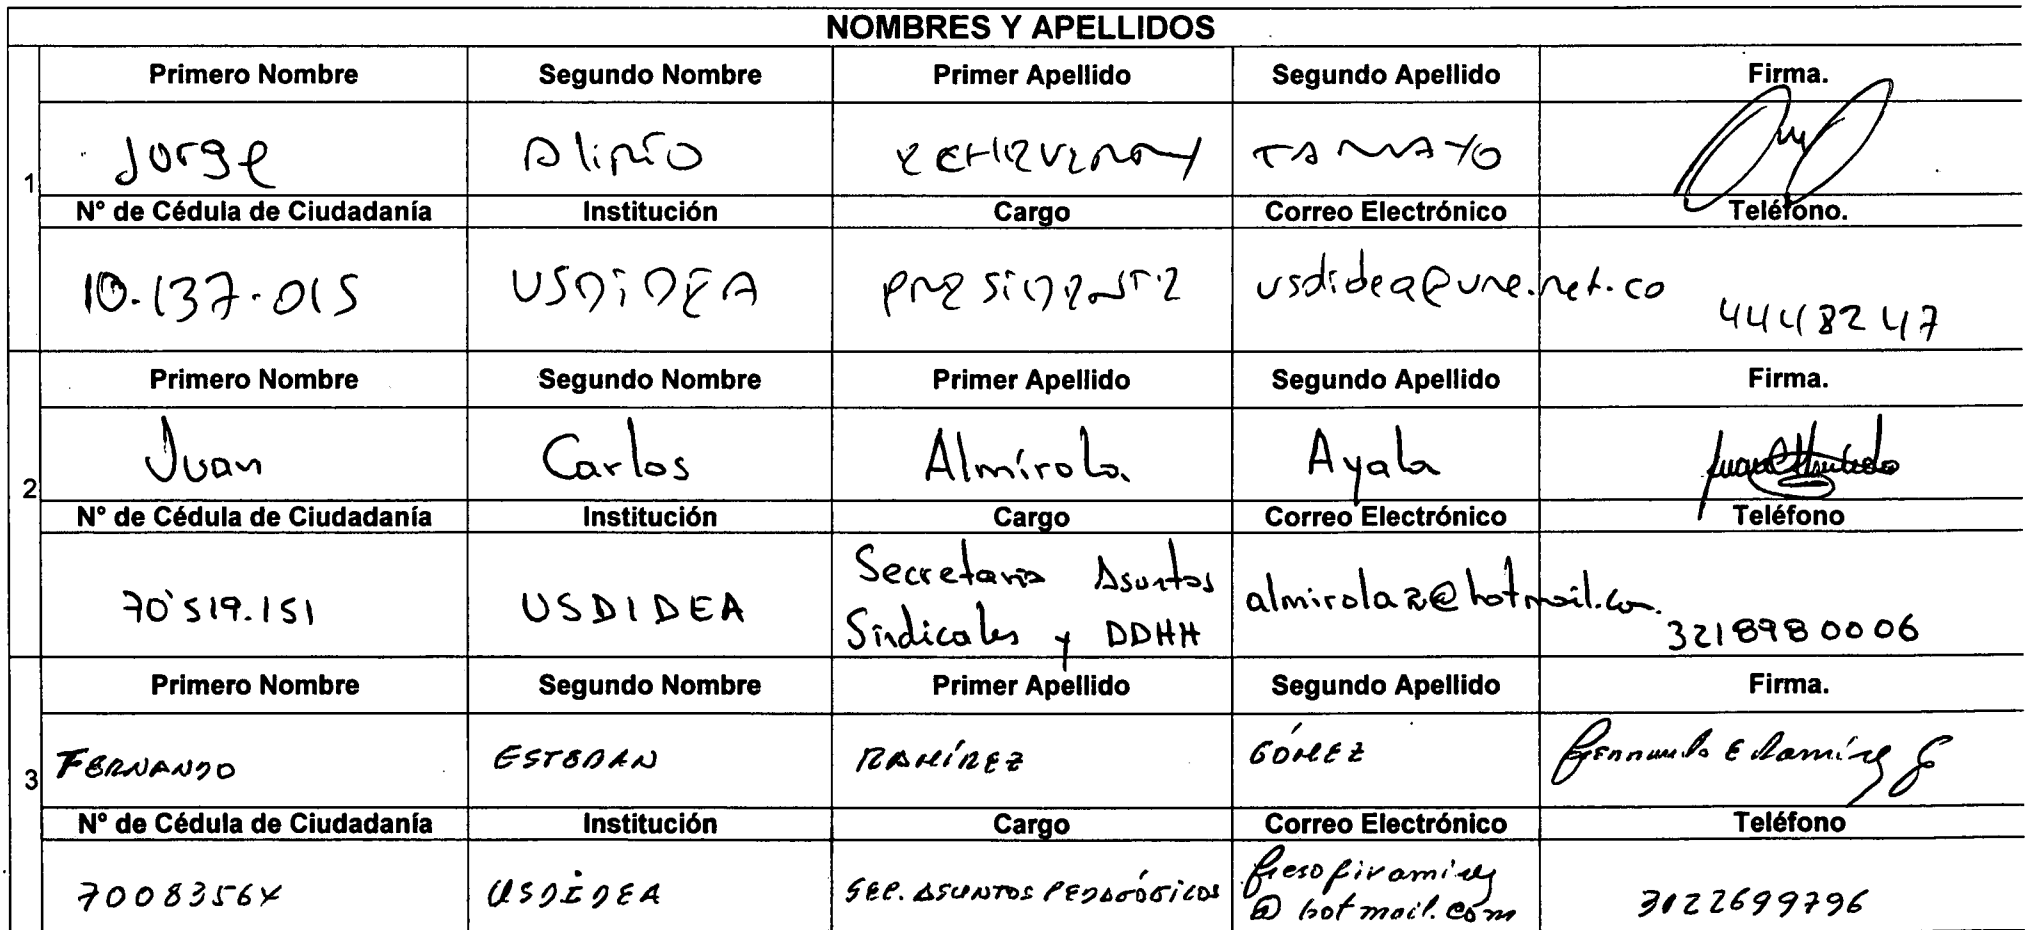 NOMBRES Y APELLIDOS
Primero Nombre Segundo Nombre Primer Apellido Segundo Apellido Firma.
1 Jorge Alirio ECHEVERRY TAMAYO
N° de Cédula de Ciudadanía Institución Cargo Correo Electrónico Teléfono.
10.137.015 USDIDEA PRESIDENTE usdidea@une.net.co 4448247
Primero Nombre Segundo Nombre Primer Apellido Segundo Apellido Firma.
2 Juan Carlos Almirola Ayala
N° de Cédula de Ciudadanía Institución Cargo Correo Electrónico Teléfono
Secretario Asuntos
70'519.151 USDIDEA Sindicales y DDHH almirola2@hotmail.com 3218980006
Primero Nombre Segundo Nombre Primer Apellido Segundo Apellido Firma.
3 FERNANDO ESTEBAN RAMÍREZ GÓMEZ Fernando E Ramírez G
N° de Cédula de Ciudadanía Institución Cargo Correo Electrónico Teléfono
70083564 USDIDEA SEC. ASUNTOS PEDAGÓGICOS @hotmail.com 3022699796